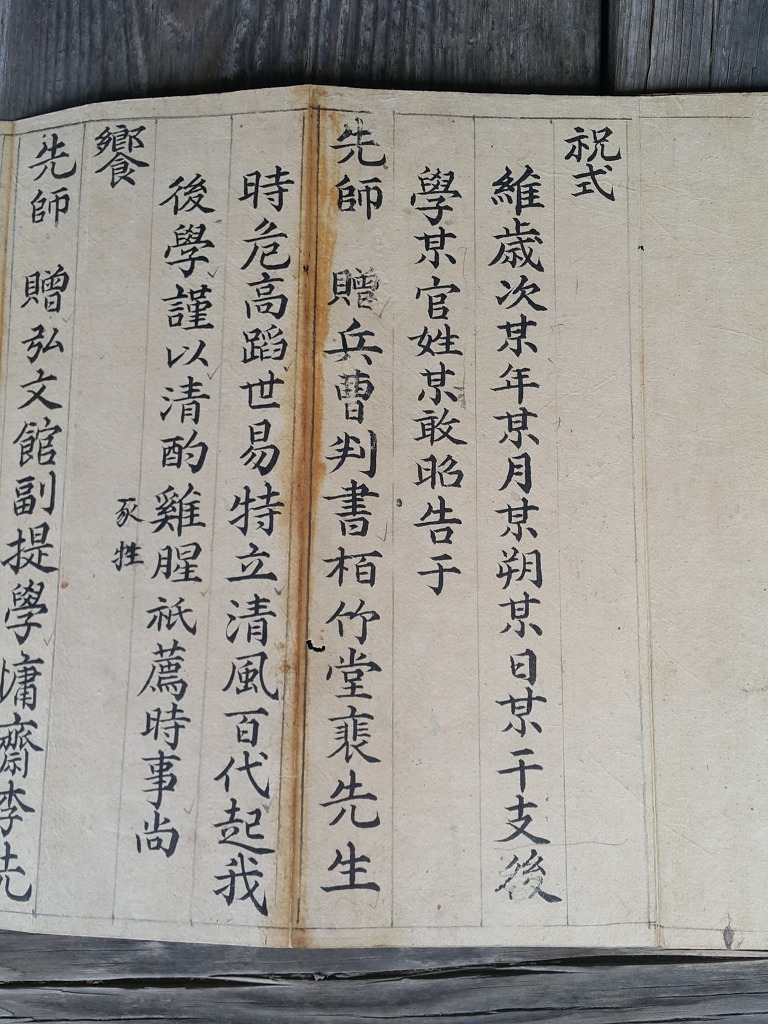 祝式
維歲次某年某月某朔某日某干支後
學某官姓某敢昭告于
先師 贈兵曹判書栢竹堂裵先生
時危高蹈世易特立清風百代起我
後學謹以清酌雞腥祇薦時事尚
豕牲
饗
先師 贈弘文館副提學慵齋李先